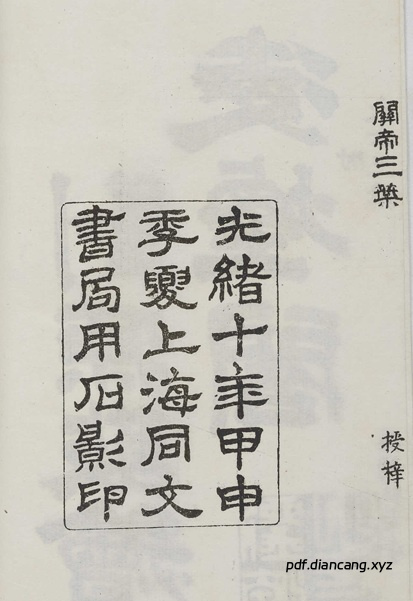 帝三
授梓
光緒十年甲申
季夏上海同文
書局用石影印
pdf.diancang.xyz